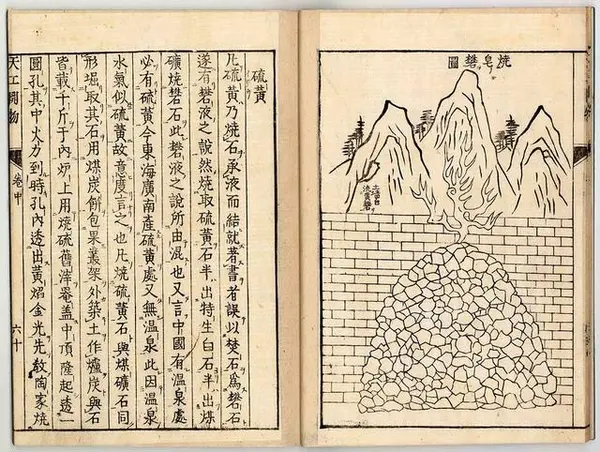 燒皂礬圖
硫黃
凡硫黃乃燒石承液而結就著書者誤以焚石爲礬石
遂有礬液之說然燒取硫黃石半出特生白石半出煤
礦燒礬石此礬液之說所由混也又言中國有溫泉處
必有硫黃今東海廣南產硫黃處又無溫泉此因溫泉
水氣似硫黃故意度言之也凡燒硫黃石與煤礦石同
形掘取其石用煤炭餅包裹叢架外築土作爐炭與石
皆載千斤于內爐上用燒硫舊滓罨蓋中頂隆起透一
圓孔其中火力到時孔內透出黃焰金光先敎陶家燒
天工開物 卷中 六十